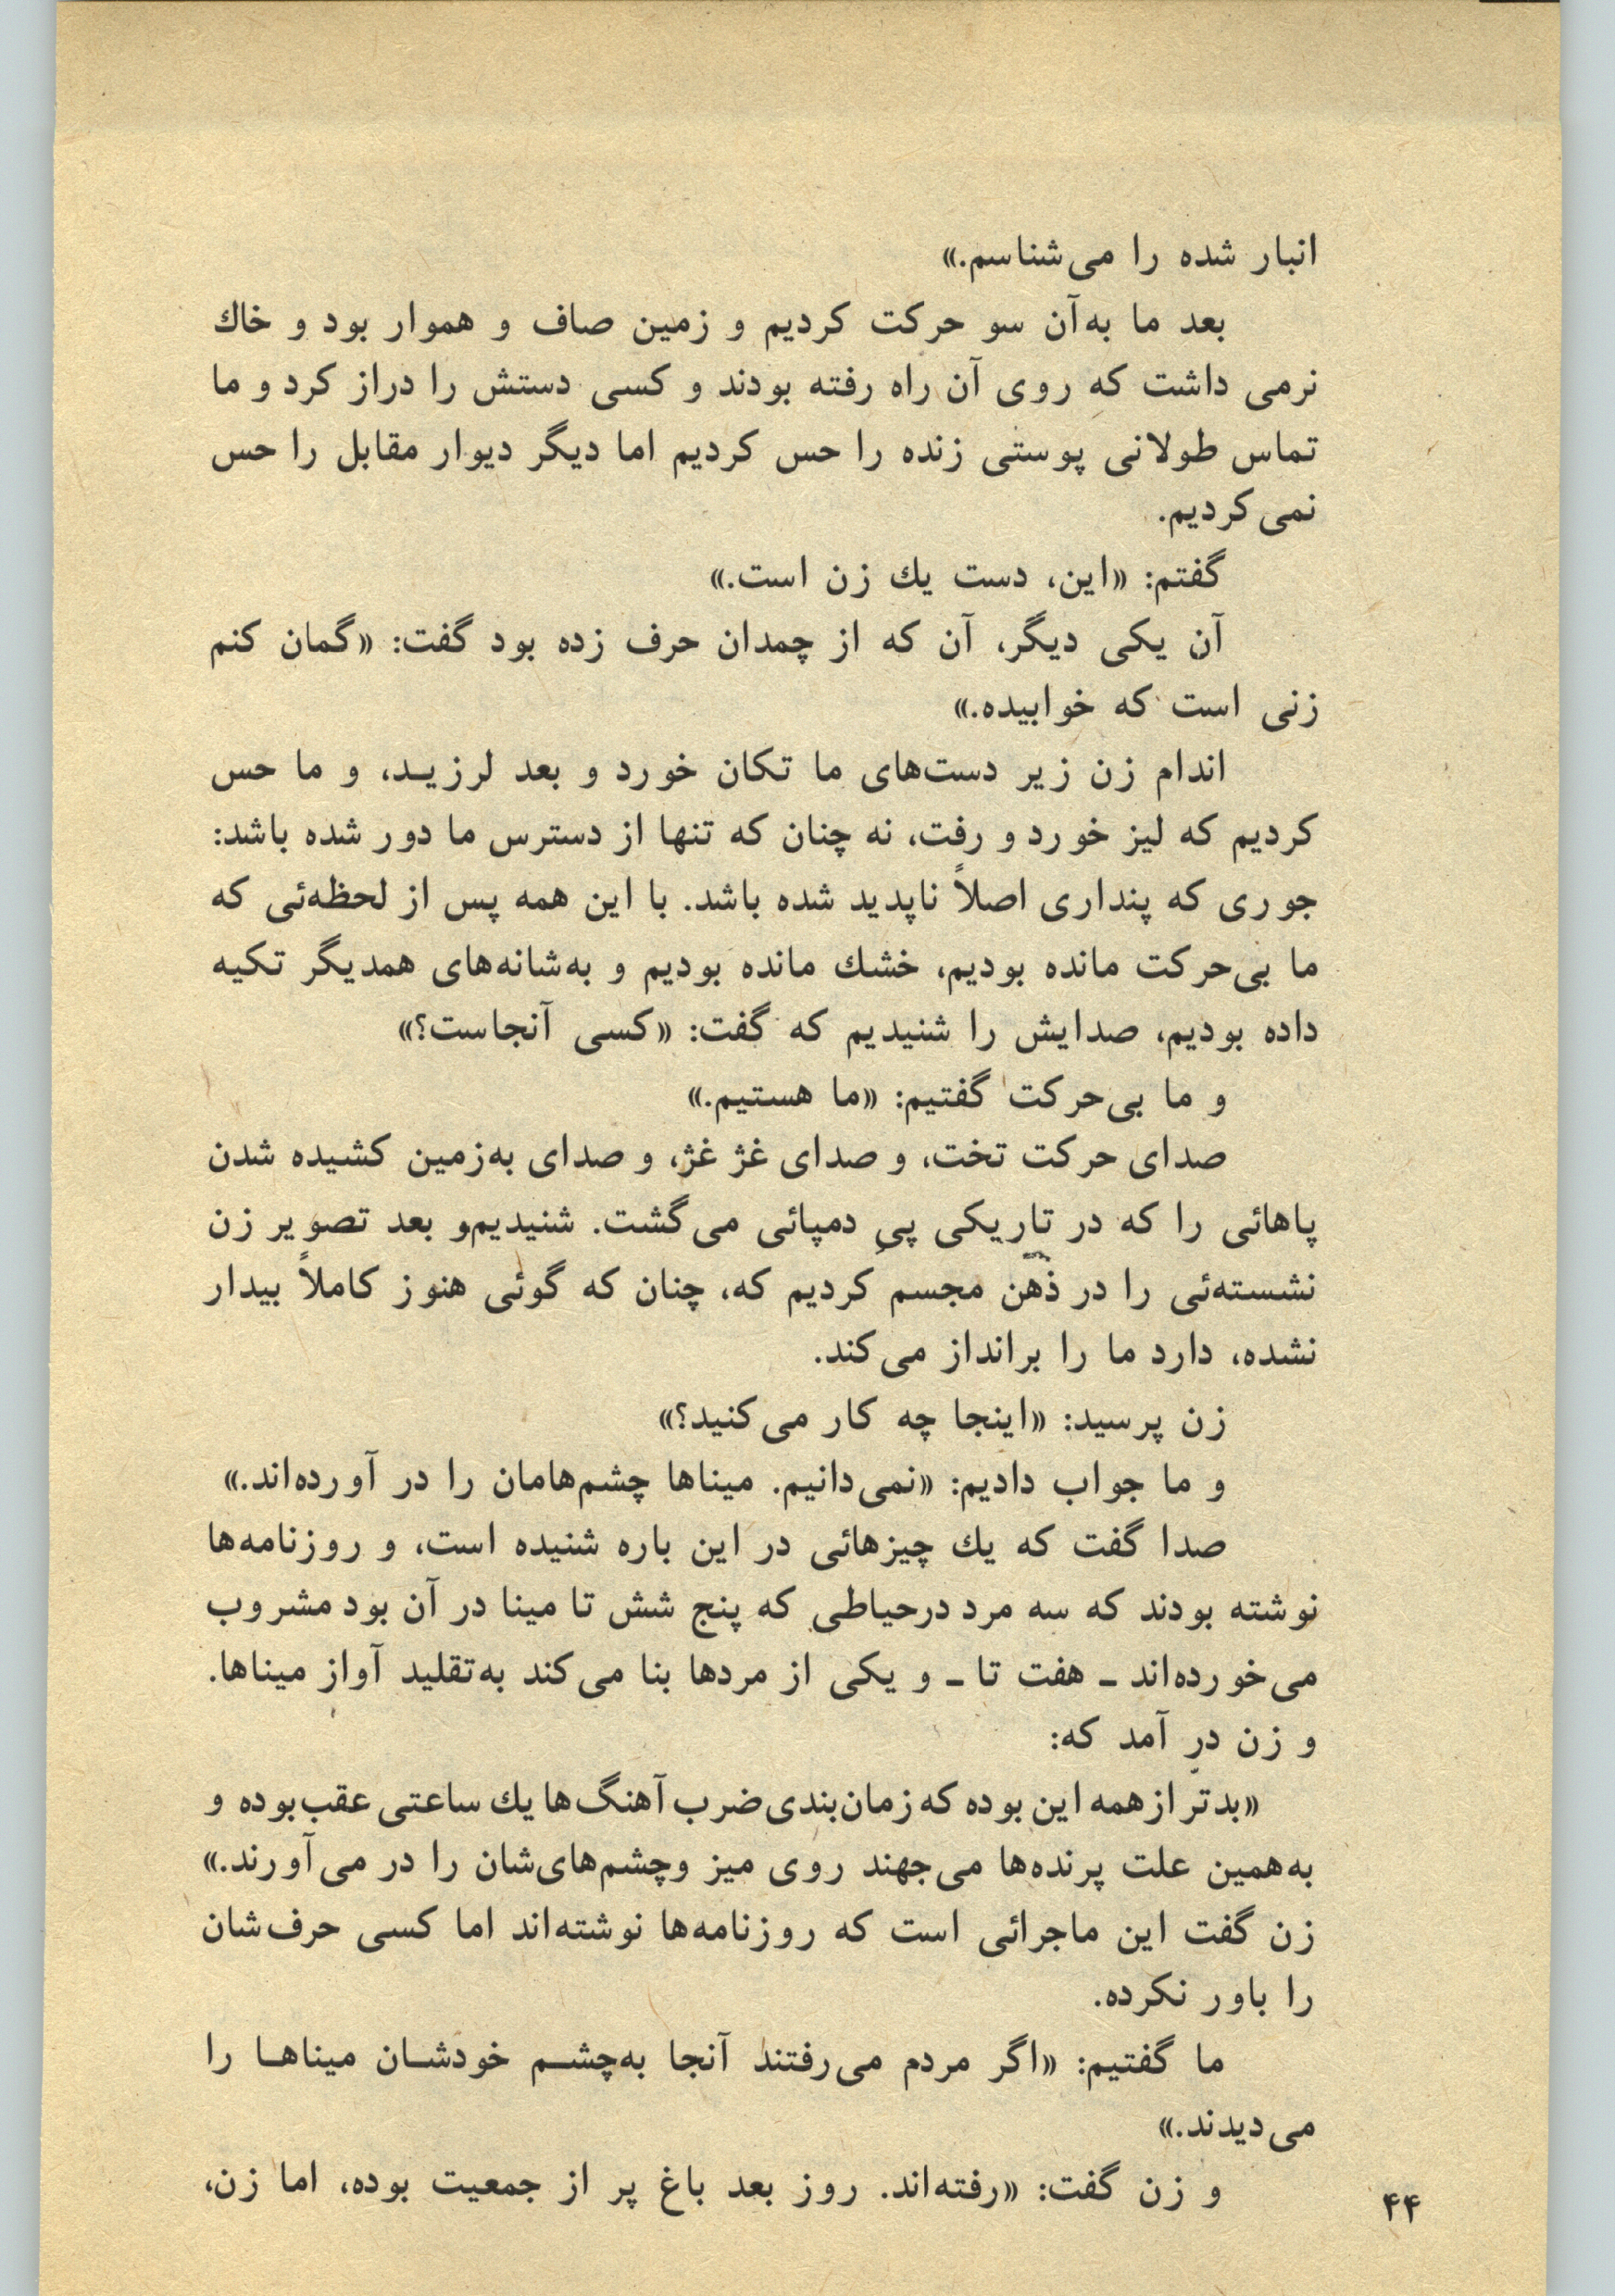 انبار شده را می‌شناسم.»
بعد ما به‌آن سو حرکت کردیم و زمین صاف و هموار بود و خاك
نرمی داشت که روی آن راه رفته بودند و کسی دستش را دراز کرد و ما
تماس طولانی پوستی زنده را حس کردیم اما دیگر دیوار مقابل را حس
نمی‌کردیم.
گفتم: «این، دست یك زن است.»
آن یکی دیگر، آن که از چمدان حرف زده بود گفت: «گمان کنم
زنی است که خوابیده.»
اندام زن زیر دست‌های ما تکان خورد و بعد لرزیـد، و ما حس
کردیم که لیز خورد و رفت، نه چنان که تنها از دسترس ما دور شده باشد:
جوری که پنداری اصلاً ناپدید شده باشد. با این همه پس از لحظه‌ئی که
ما بی‌حرکت مانده بودیم، خشك مانده بودیم و به‌شانه‌های همدیگر تکیه
داده بودیم، صدایش را شنیدیم که گفت: «کسی آنجاست؟»
و ما بی‌حرکت گفتیم: «ما هستیم.»
صدای حرکت تخت، و صدای غژ غژ، و صدای به‌زمین کشیده شدن
پاهائی را که در تاریکی پیِ دمپائی می‌گشت. شنیدیم‌و بعد تصویر زن
نشسته‌ئی را در ذهن مجسم کردیم که، چنان که گوئی هنوز کاملاً بیدار
نشده، دارد ما را برانداز می‌کند.
زن پرسید: «اینجا چه کار می‌کنید؟»
و ما جواب دادیم: «نمی‌دانیم. میناها چشم‌هامان را در آورده‌اند.»
صدا گفت که یك چیزهائی در این باره شنیده است، و روزنامه‌ها
نوشته بودند که سه مرد درحیاطی که پنج شش تا مینا در آن بود مشروب
می‌خورده‌اند ــ هفت تا ــ و یکی از مردها بنا می‌کند به‌تقلید آواز میناها.
و زن در آمد که:
«بدتر از همه این بوده که زمان‌بندی ضرب آهنگ‌ها یك ساعتی عقب‌بوده و
به‌همین علت پرنده‌ها می‌جهند روی میز وچشم‌های‌شان را در می‌آورند.»
زن گفت این ماجرائی است که روزنامه‌ها نوشته‌اند اما کسی حرف‌شان
را باور نکرده.
ما گفتیم: «اگر مردم می‌رفتند آنجا به‌چشـم خودشـان میناهـا را
می‌دیدند.»
و زن گفت: «رفته‌اند. روز بعد باغ پر از جمعیت بوده، اما زن،
۴۴